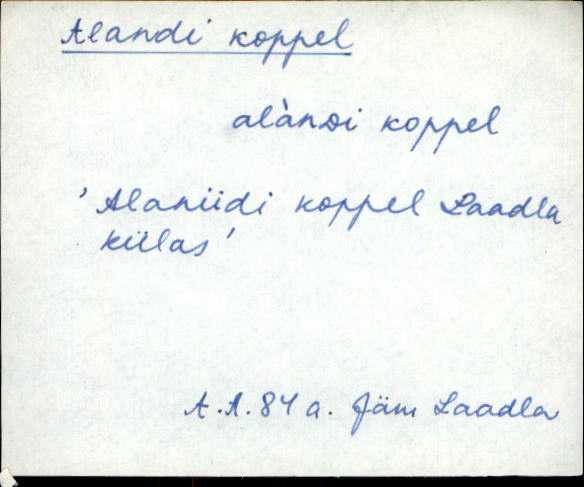 Alandi koppel
alànDi koppel
'Alaniidi koppel Laadla
külas'
A.A. 84 a. Jäm Laadla